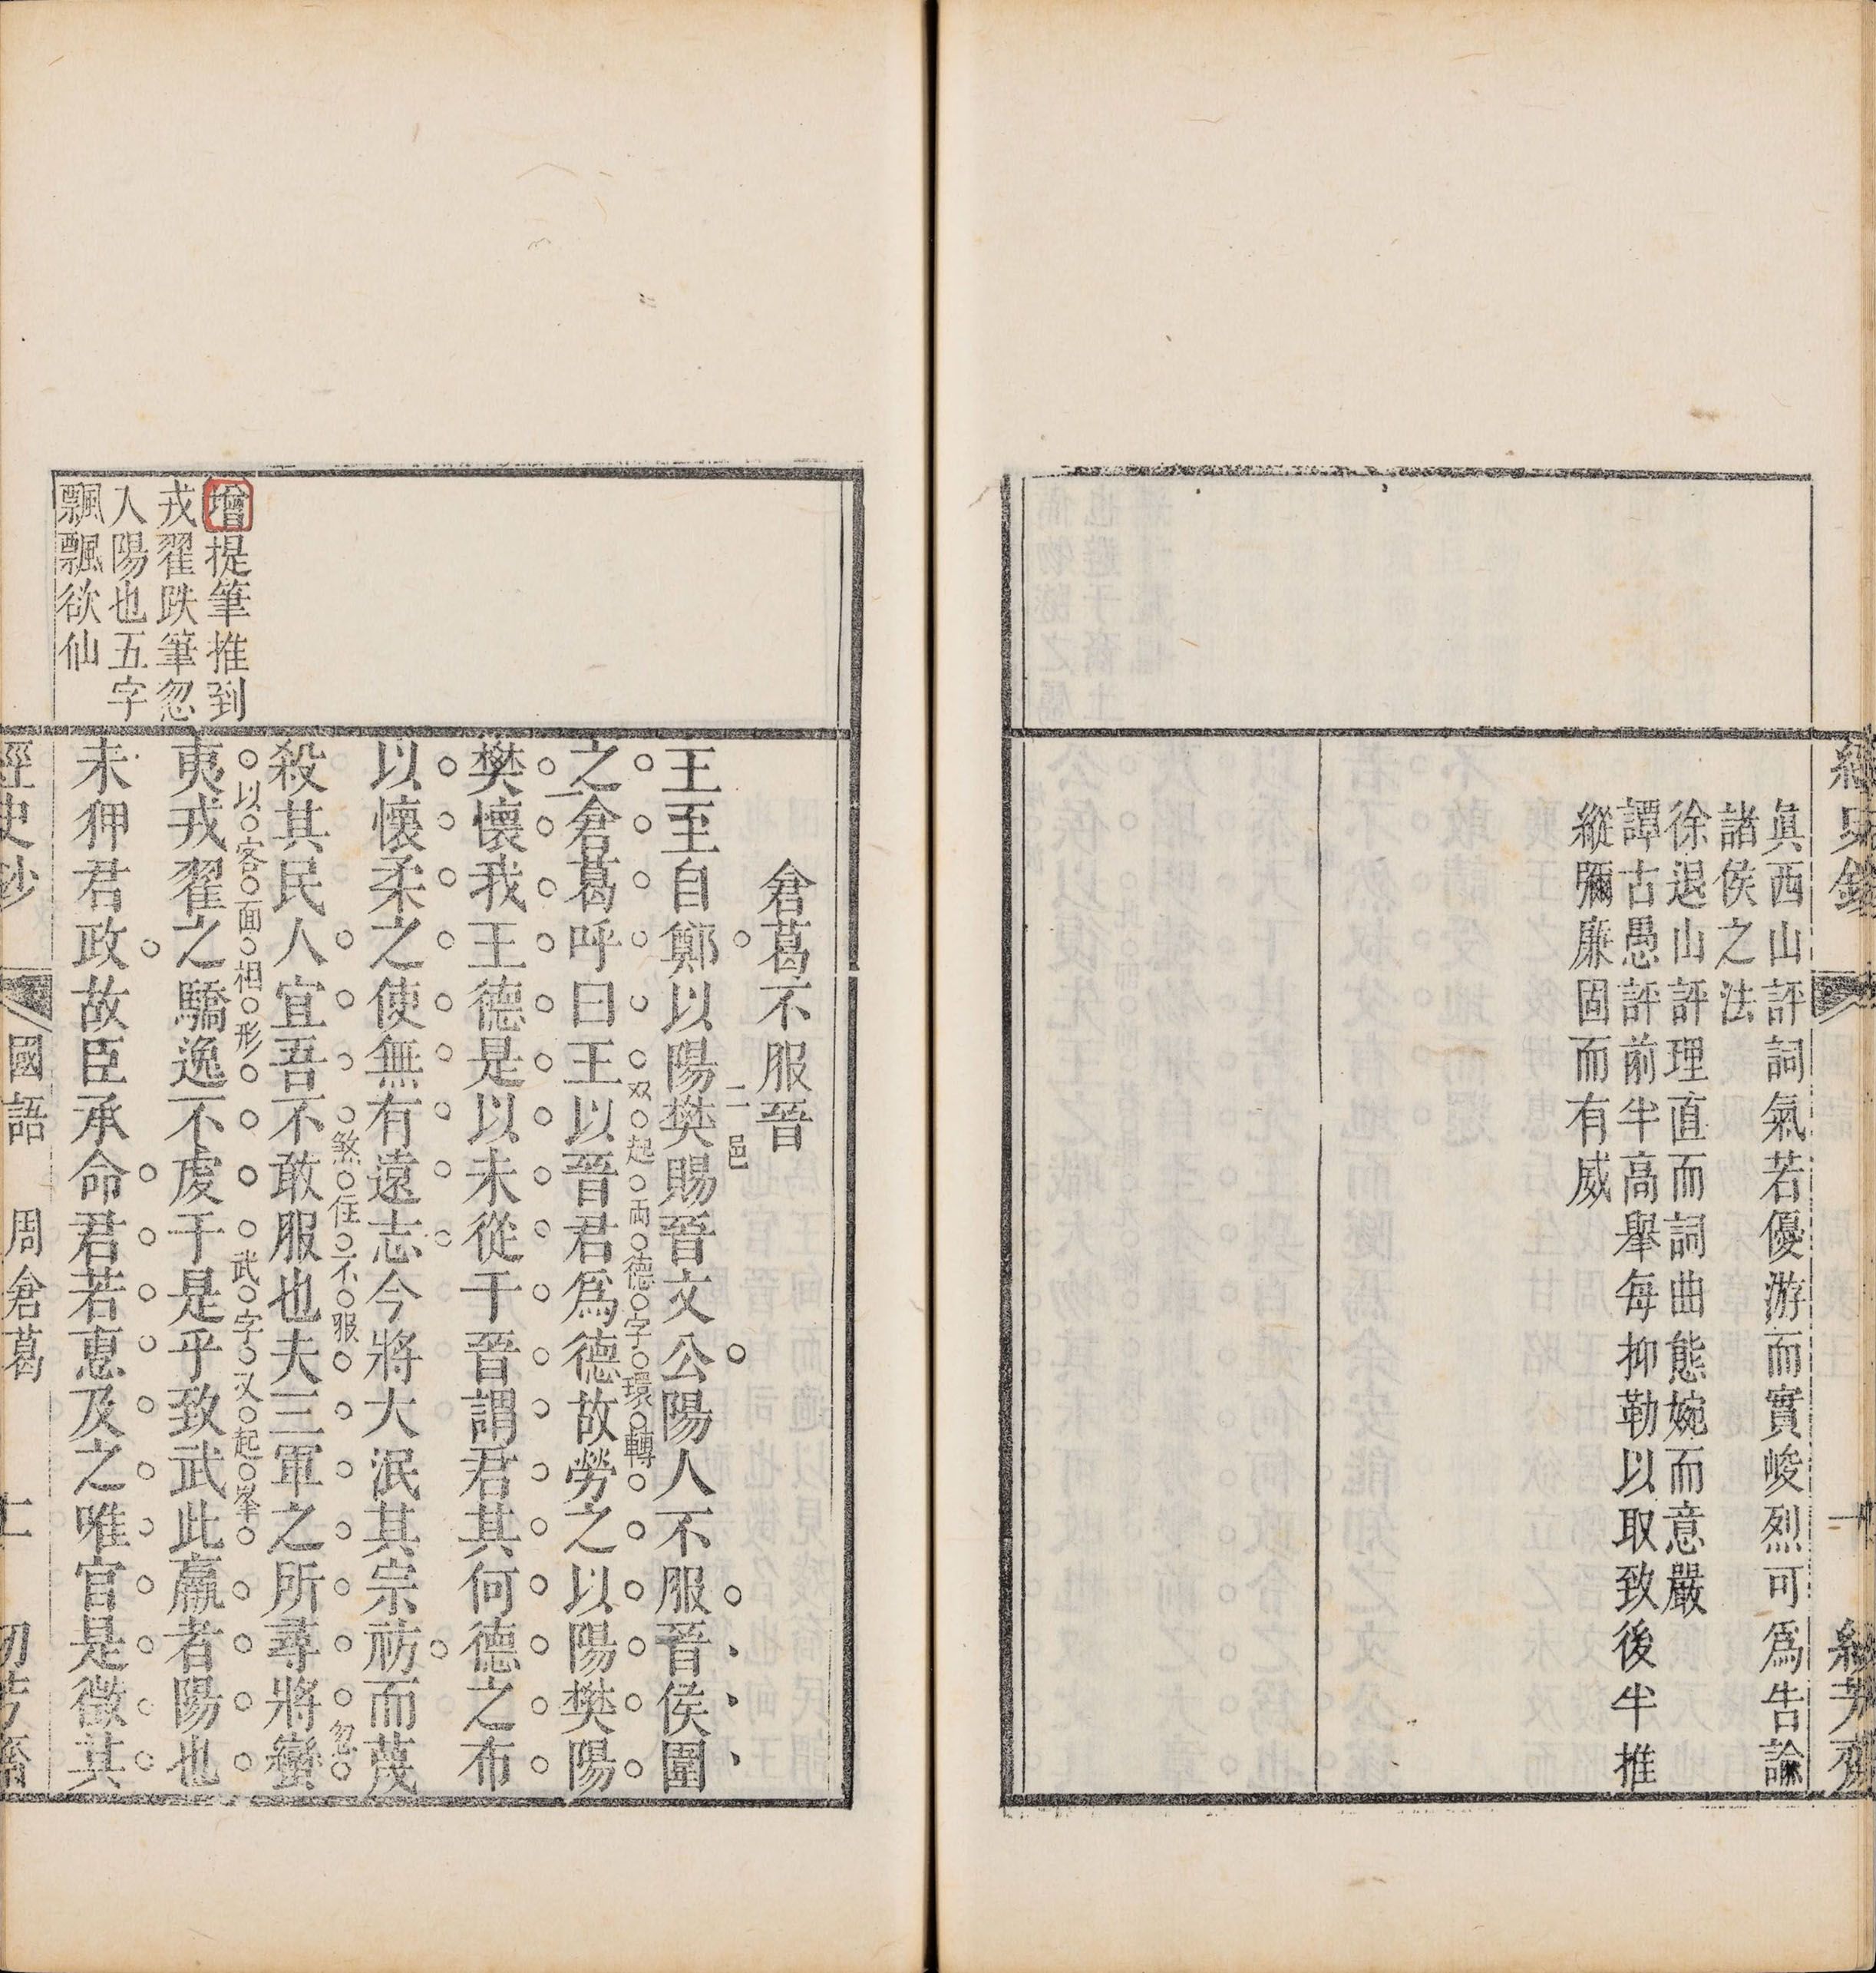 眞西山評詞氣若優游而實峻烈可爲告諭
諸侯之法
徐退山評理直而詞曲態婉而意嚴
譚古愚評前半高舉每抑勒以取致後半推
縱彌廉固而有威
倉葛不服晉
王至自鄭以陽樊賜晉文公陽人不服晉侯圍
二邑
之倉葛呼曰王以晉君爲德故勞之以陽樊陽
双起両德字環轉
樊懷我王德是以未從于晉謂君其何德之布
以懷柔之使無有遠志今將大泯其宗祊而蔑
殺其民人宜吾不敢服也夫三軍之所尋將蠻
煞住不服
忽
夷戎翟之驕逸不虔于是乎致武此羸者陽也
以客面相形
武字又起峯
未狎君政故臣承命君若惠及之唯官是徵其
增提筆推到
戎翟跌筆忽
人陽也五字
飄飄欲仙
經史鈔
國語
周倉葛